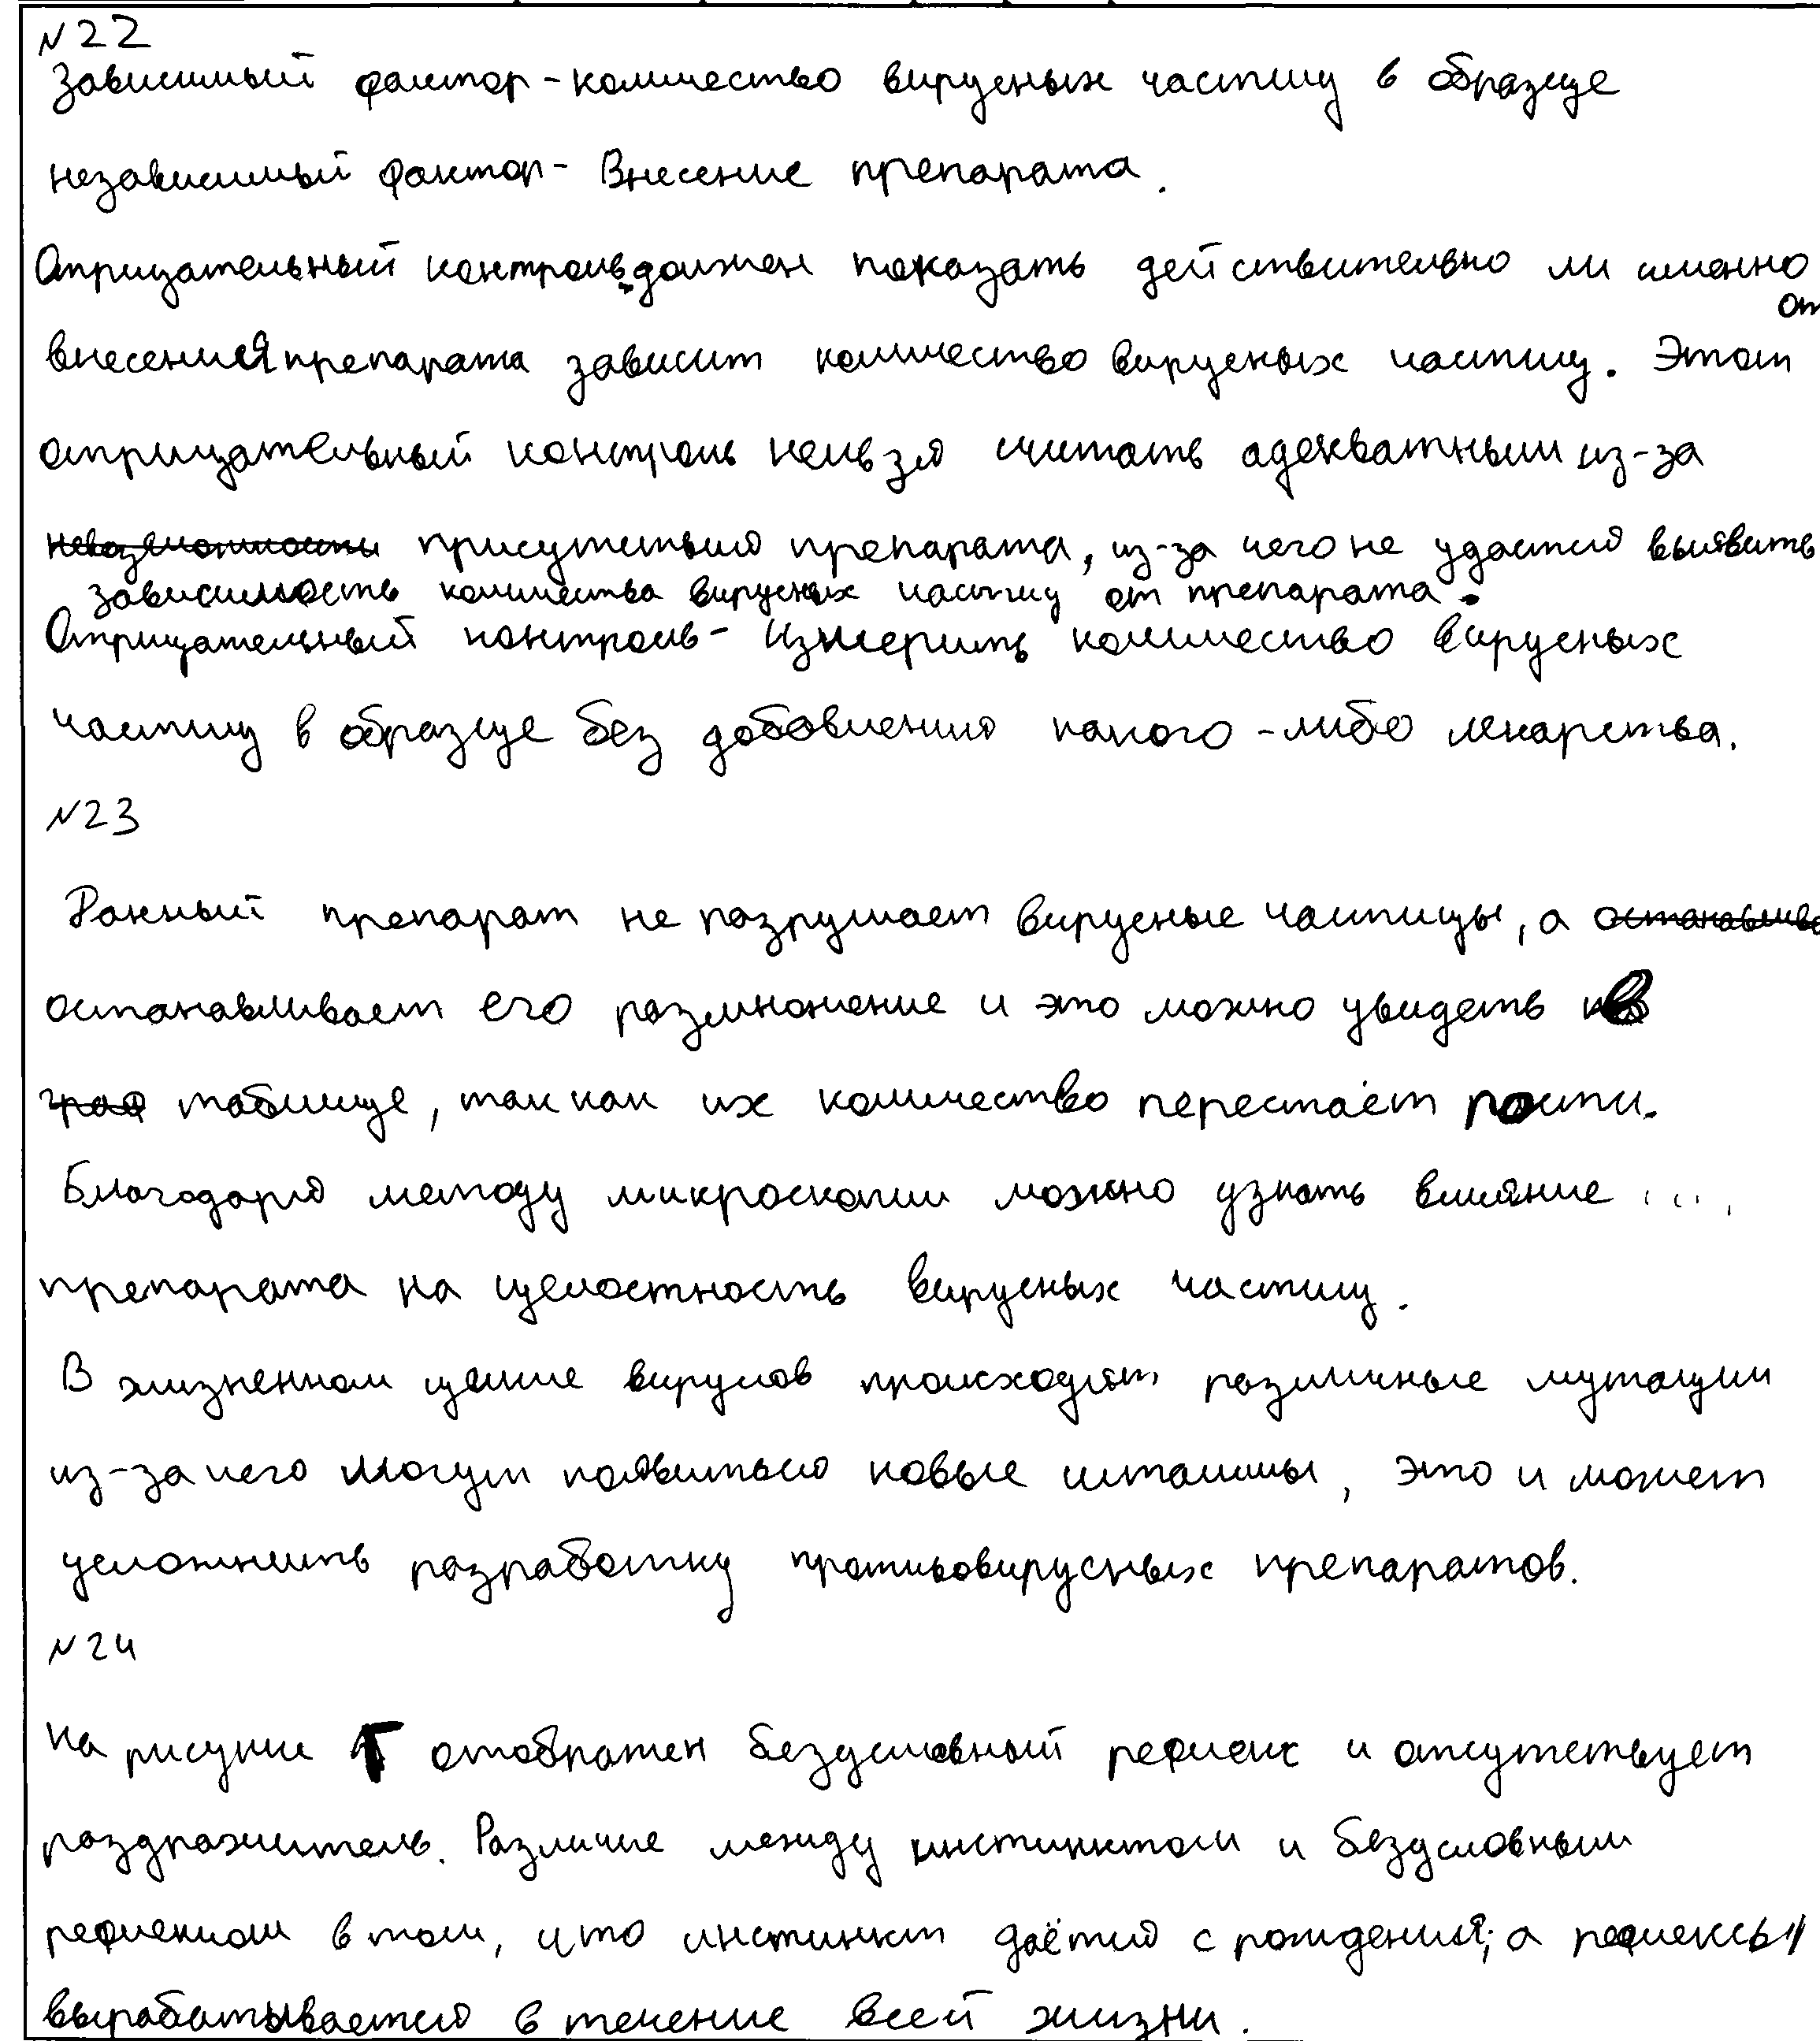 №22
Зависимый фактор - количество вирусных частиц в образце
независимый фактор - Внесение препарата.
Отрицательный контроль должен показать действительно ли именно
от
внесения препарата зависит количество вирусных частиц. Этот
отрицательный контроль нельзя считать адекватным из-за
невозможности присутствия препарата, из-за чего не удастся выявить
зависимость количества вирусных частиц от препарата.
Отрицательный контроль - Измерить количество вирусных
частиц в образце без добавления какого-либо лекарства.
№23
Данный препарат не разрушает вирусные частицы, а останавлива
останавливает его размножение и это можно увидеть в
граф таблице, так как их количество перестаёт расти.
Благодаря методу микроскопии можно узнать влияние ....
препарата на целостность вирусных частиц.
В жизненном цикле вирусов происходят различные мутации
из-за чего могут появиться новые штаммы, это и может
усложнить разработку противовирусных препаратов.
№24
На рисунке Г отображен безусловный рефлекс и отсутствует
раздражитель. Различие между инстинктом и безусловным
рефлексом в том, что инстинкт даётся с рождения; а рефлексы
вырабатывается в течение всей жизни.